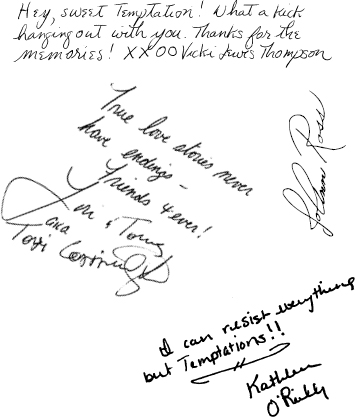 Hey, sweet Temptation! What a kick
hanging out with you. Thanks for the
memories! XXOO Vicki Lewis Thompson
True love stories never
have endings -
Friends 4 ever!
Lori & Tony
aka
Tori
JoAnn Ross
I can resist everything
but Temptations!!
Kathleen
O'Reilly